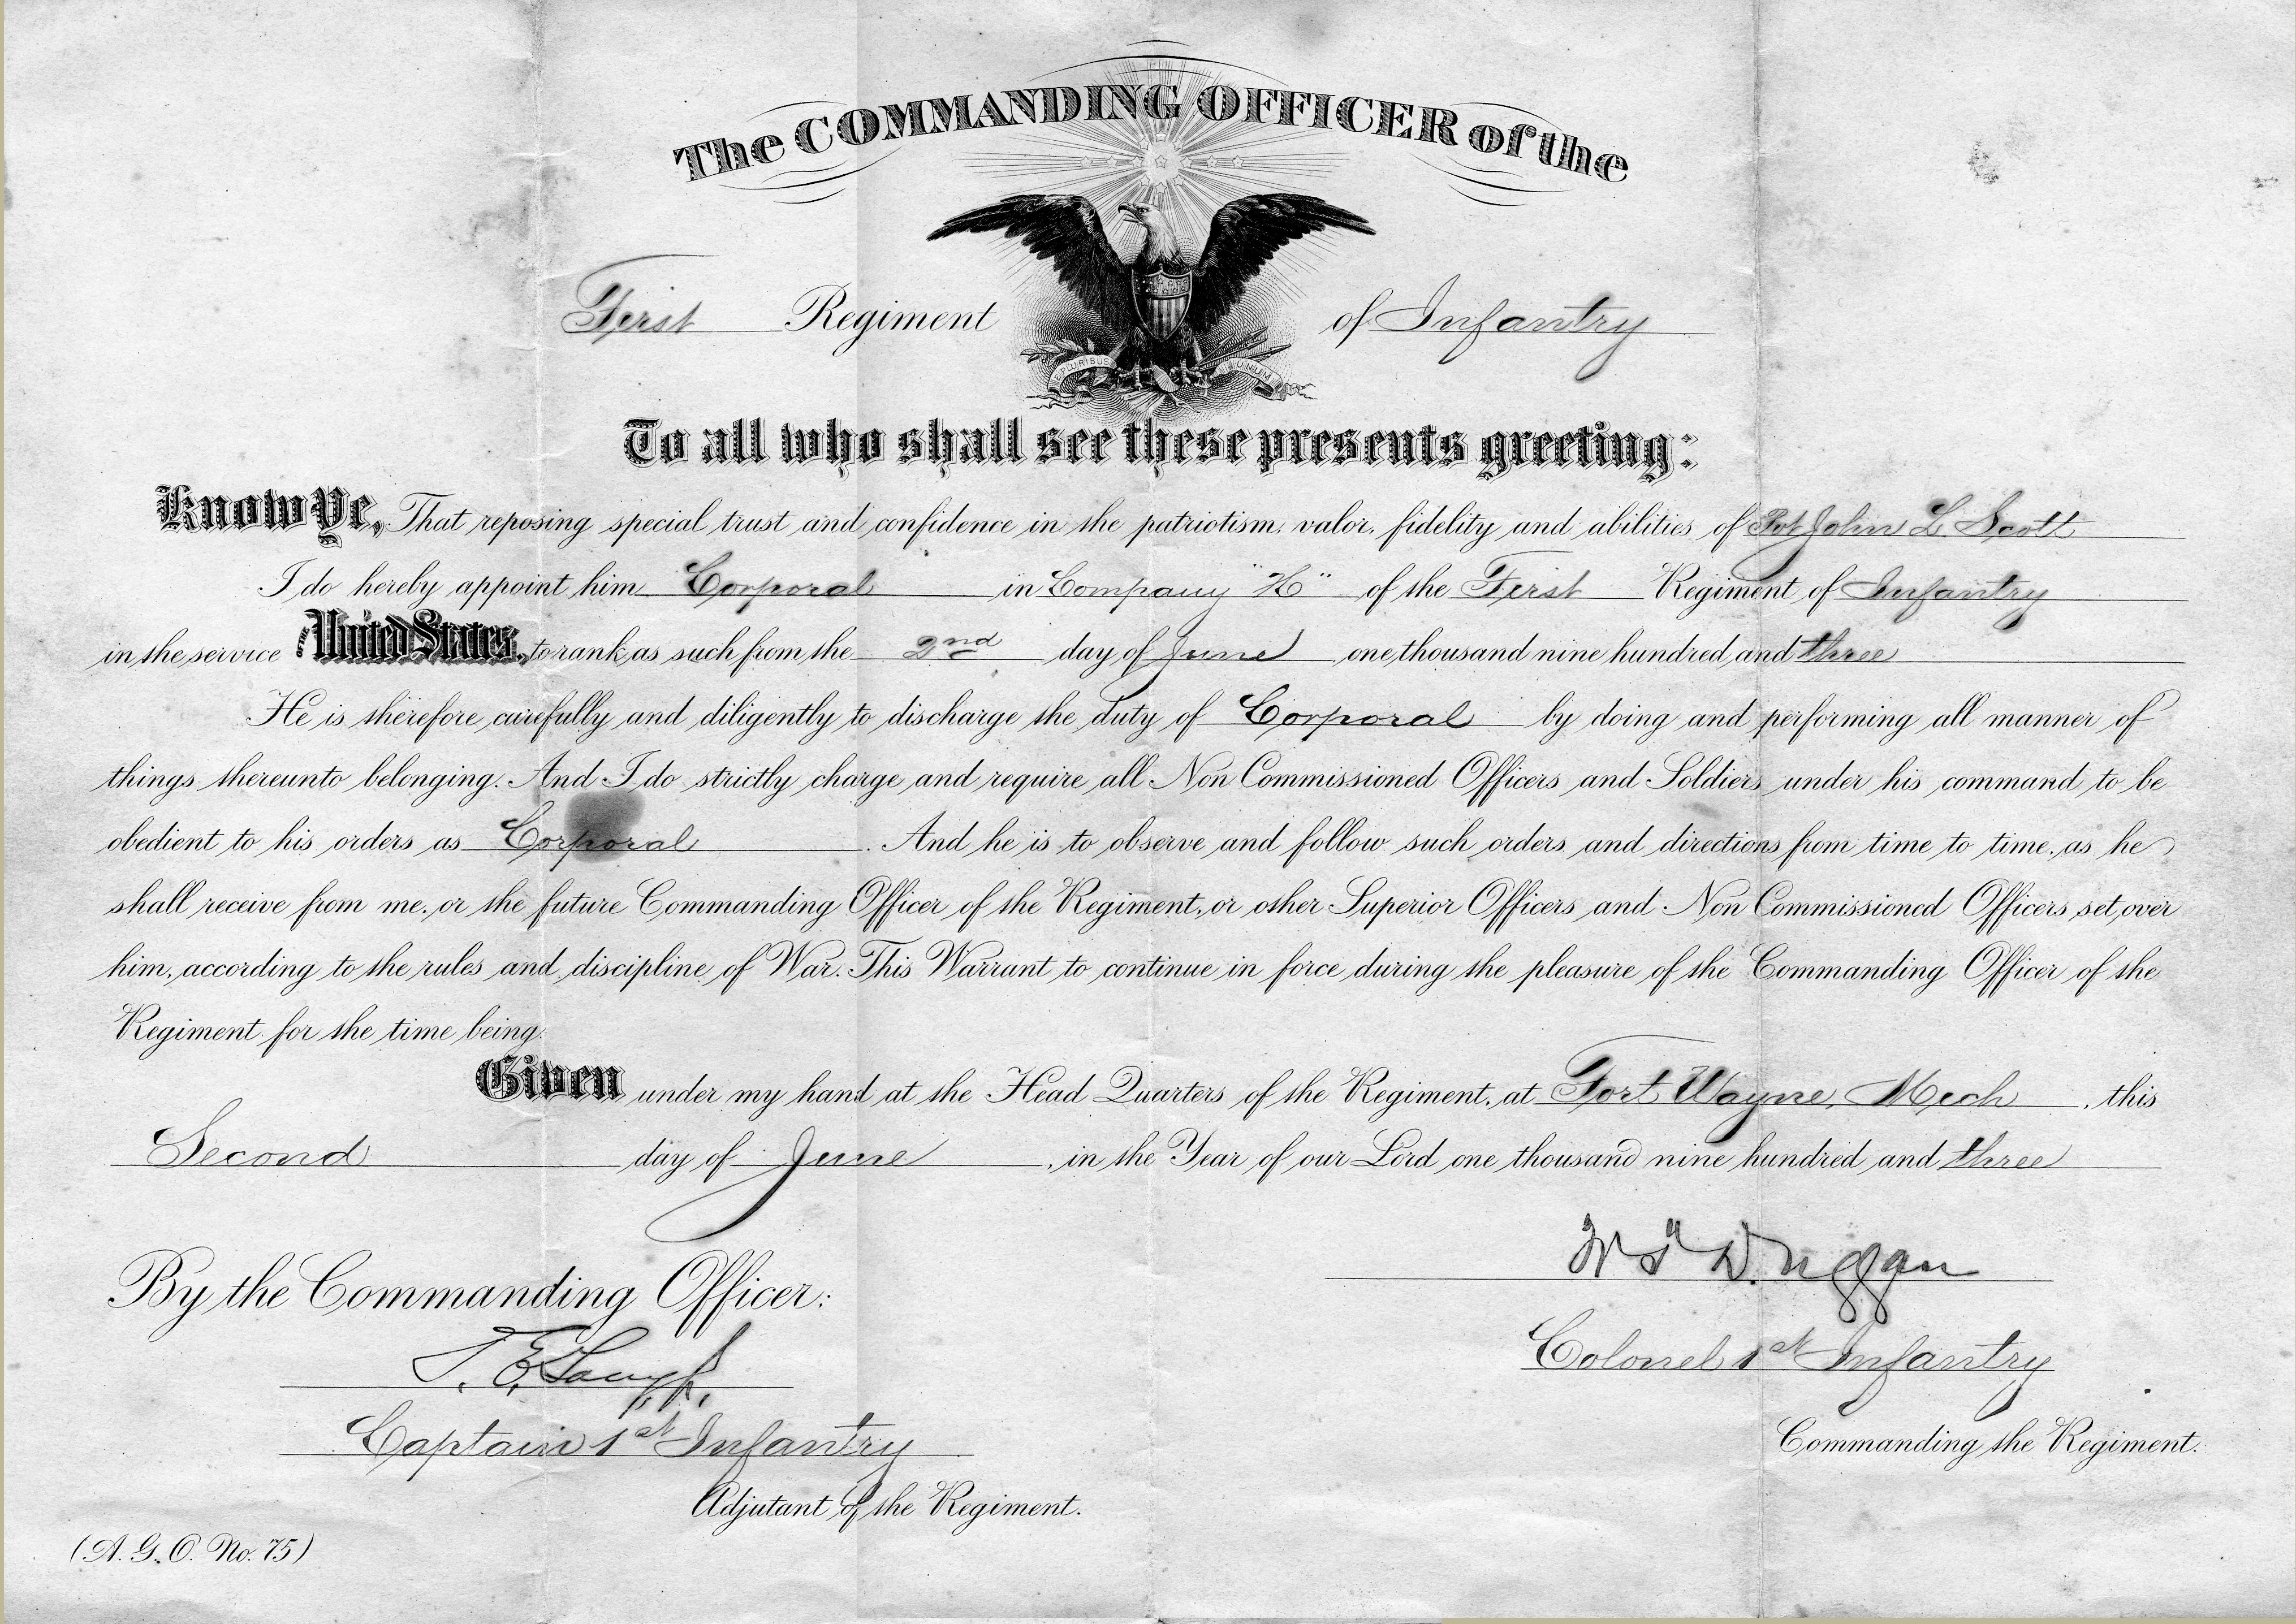 The COMMANDING OFFICER of the
First Regiment of Infantry
E PLURIBUS UNUM
To all who shall see these presents greeting:
Know Ye, That reposing special trust and confidence in the patriotism, valor, fidelity and abilities of Pvt John L. Scott
I do hereby appoint him Corporal in Company "H" of the First Regiment of Infantry
in the service OF THE United States, to rank as such from the 2nd day of June one thousand nine hundred and three
He is therefore carefully and diligently to discharge the duty of Corporal by doing and performing all manner of
things thereunto belonging. And I do strictly charge and require all Non Commissioned Officers and Soldiers under his command to be
obedient to his orders as Corporal . And he is to observe and follow such orders and directions from time to time, as he
shall receive from me, or the future Commanding Officer of the Regiment, or other Superior Officers and Non Commissioned Officers set over
him, according to the rules and discipline of War. This Warrant to continue in force during the pleasure of the Commanding Officer of the
Regiment for the time being.
Given under my hand at the Head Quarters of the Regiment, at Fort Wayne, Mich , this
Second day of June , in the Year of our Lord one thousand nine hundred and three
W T Duggan
By the Commanding Officer:
Colonel 1st Infantry
T. E.
Captain 1st Infantry
Commanding the Regiment.
Adjutant of the Regiment.
(A. G. O. No. 75)